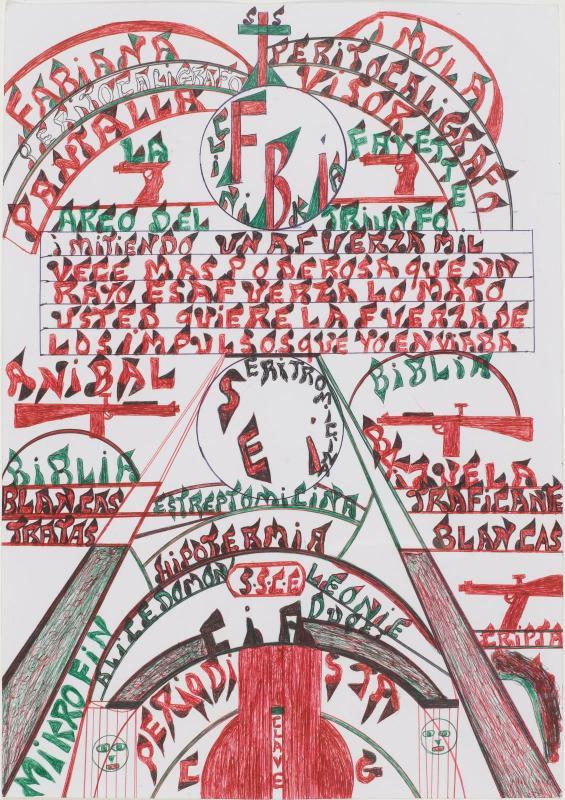 S S
FABIANA
IMOLA
PERITOCALIGRAFO
PERITOCALIGRAFO
PANTALLA
VISOR
LA
FBI
FAYETTE
ARCO DEL
TRIUNFO
iMITIENDO UNA FUERZA MIL
VECE MAS PODEROSA QUE UN
RAYO ESA FUERZA LO MATO
USTED QUIERE LA FUERZA DE
LOS iMPULSOS QUE YO ENVIABA
ANiBAL
ERITROMICINA
SEi
BiBLIA
BiBLIA
BLANCAS
TRATAS
ESTREPTOMICINA
TRAFICANTE
BLANCAS
HIPOTERMIA
S.S.C.E
ALICE DOMON
LEONIE
CiA
CRIPTA
MiKROFiN
PERIODISTA
CLAVE
C
G